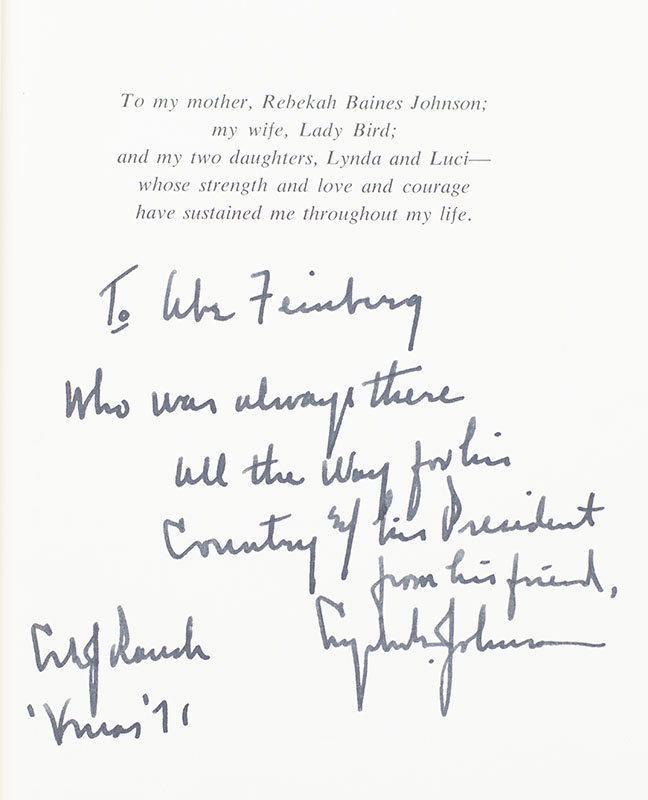 To my mother, Rebekah Baines Johnson;
my wife, Lady Bird;
and my two daughters, Lynda and Luci—
whose strength and love and courage
have sustained me throughout my life.
To Abe Feinberg
Who was always there
all the Way for his
Country & his President
from his friend,
Lyndon B. Johnson
LBJ Ranch
'Xmas' 71